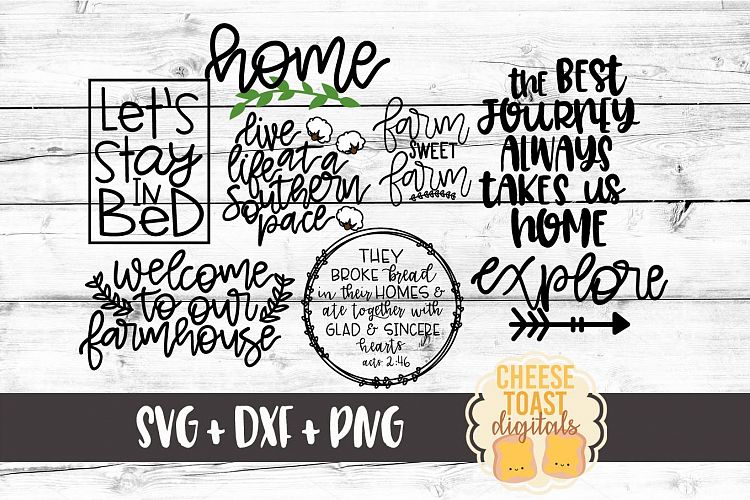 home
Let's
Stay
IN
BeD
live
life at a
Southern
pace
farm
SWEET
farm
the BEST
JOURNEY
ALWAYS
TAKES US
HOME
welcome
to our
farmhouse
THEY
BROKE bread
in their HOMES &
ate together with
GLAD & SINCERE
hearts
acts 2:46
explore
SVG + DXF + PNG
CHEESE
TOAST
digitals